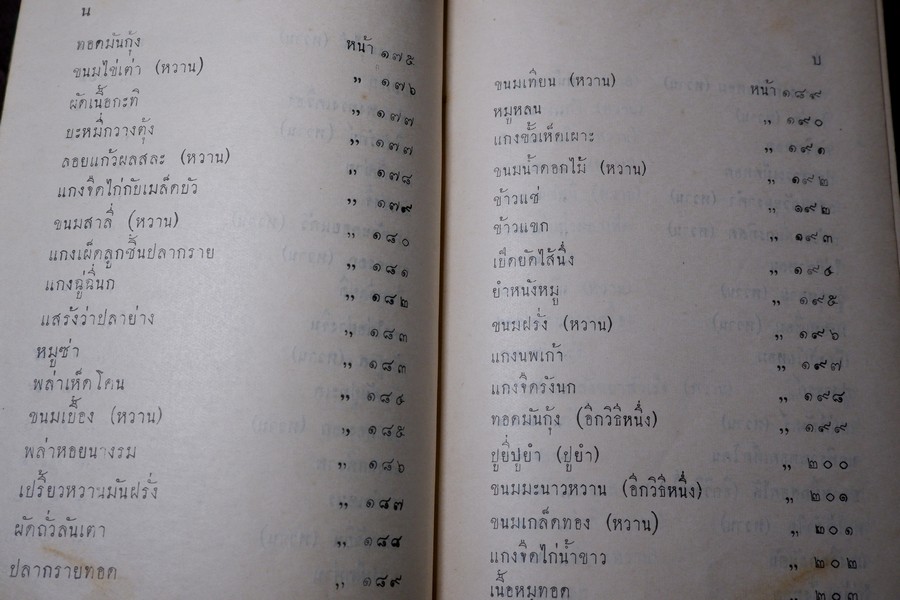 น
ทอดมันกุ้ง หน้า ๑๗๕
ขนมไข่เต่า (หวาน) ,, ๑๗๖
ผัดเนื้อกะทิ ,, ๑๗๗
บะหมี่กวางตุ้ง ,, ๑๗๗
ลอยแก้วผลสละ (หวาน) ,, ๑๗๘
แกงจืดไก่กับเมล็ดบัว ,, ๑๗๙
ขนมสาลี่ (หวาน) ,, ๑๘๐
แกงเผ็ดลูกชิ้นปลากราย ,, ๑๘๑
แกงฉู่ฉี่นก ,, ๑๘๒
แสร้งว่าปลาย่าง ,, ๑๘๓
หมูซ่า ,, ๑๘๓
พล่าเห็ดโคน ,, ๑๘๔
ขนมเบื้อง (หวาน) ,, ๑๘๕
พล่าหอยนางรม ,, ๑๘๖
เปรี้ยวหวานมันฝรั่ง ,, ๑๘๗
ผัดถั่วลันเตา ,, ๑๘๘
ปลากรายทอด ,, ๑๘๙
บ
ขนมเทียน (หวาน) หน้า ๑๘๙
หมูหลน ,, ๑๙๐
แกงขั้วเห็ดเผาะ ,, ๑๙๑
ขนมน้ำดอกไม้ (หวาน) ,, ๑๙๒
ข้าวแช่ ,, ๑๙๒
ข้าวแขก ,, ๑๙๓
เป็ดยัดไส้นึ่ง ,, ๑๙๔
ยำหนังหมู ,, ๑๙๕
ขนมฝรั่ง (หวาน) ,, ๑๙๖
แกงนพเก้า ,, ๑๙๗
แกงจืดรังนก ,, ๑๙๘
ทอดมันกุ้ง (อีกวิธีหนึ่ง) ,, ๑๙๙
ปูยี่ปูยำ (ปูยำ) ,, ๒๐๐
ขนมมะนาวหวาน (อีกวิธีหนึ่ง) ,, ๒๐๑
ขนมเกล็ดทอง (หวาน) ,, ๒๐๑
แกงจืดไก่น้ำขาว ,, ๒๐๒
เนื้อหมูทอด ,, ๒๐๓